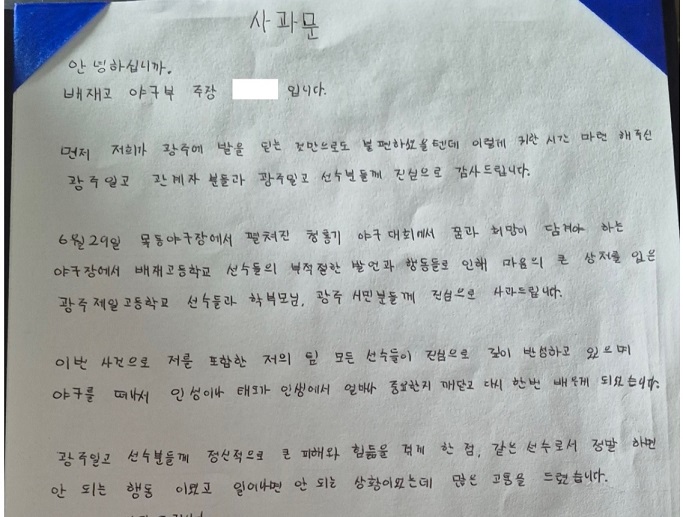 사과문
안녕하십니까.
배재고 야구부 주장 입니다.
먼저 저희가 광주에 발을 딛는 것만으로도 불편하셨을텐데 이렇게 귀한 시간 마련 해주신
광주일고 관계자 분들과 광주일고 선수분들께 진심으로 감사드립니다.
6월 29일 목동야구장에서 펼쳐진 청룡기 야구대회에서 꿈과 희망이 담겨야 하는
야구장에서 배재고등학교 선수들의 부적절한 발언과 행동들로 인해 마음의 큰 상처를 입은
광주제일고등학교 선수들과 학부모님, 광주 시민분들께 진심으로 사과드립니다.
이번 사건으로 저를 포함한 저의 팀 모든 선수들이 진심으로 깊이 반성하고 있으며
야구를 떠나서 인성이나 태도가 인생에서 얼마나 중요한지 깨닫고 다시 한번 배우게 되었습니다.
광주일고 선수분들께 정신적으로 큰 피해와 힘듦을 겪게 한 점, 같은 선수로서 정말 하면
안 되는 행동 이었고 일어나면 안 되는 상황이었는데 많은 고통을 드렸습니다.